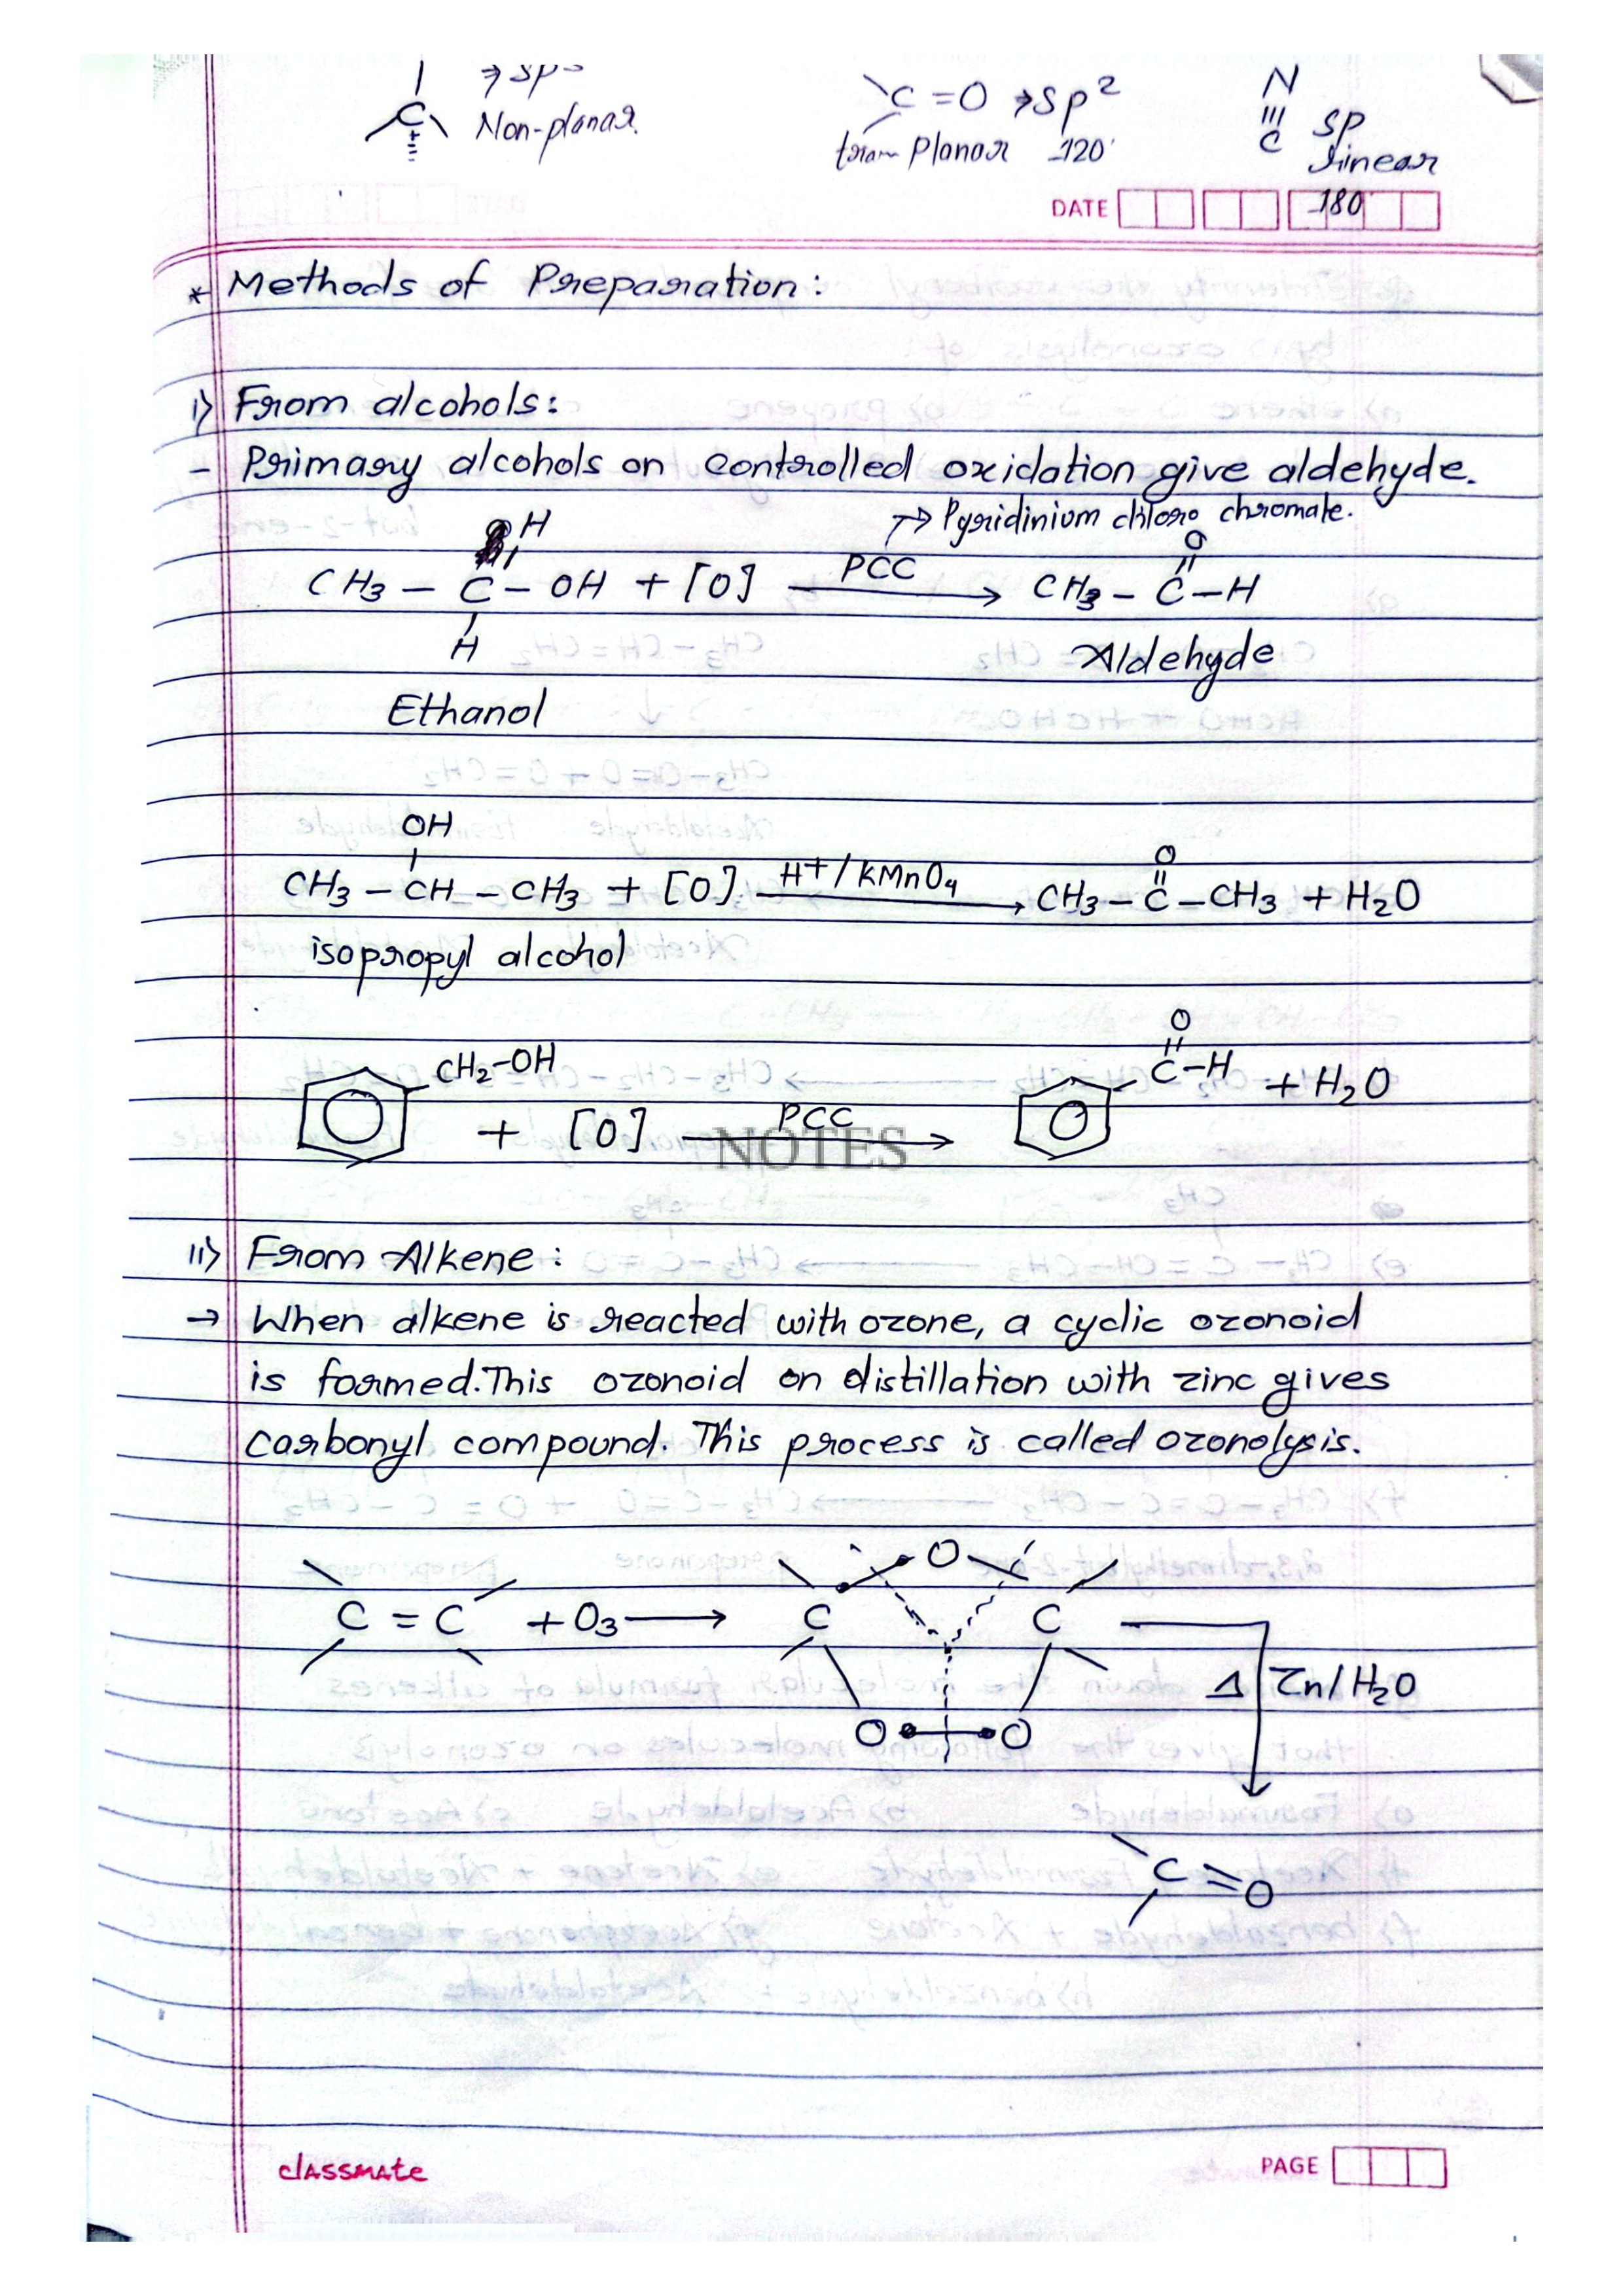 ⇒ sp³
C Non-planar.
C=O ⇒ sp²
Planar 120°
N
≡
C sp
linear
180
DATE
* Methods of Preparation:
i) From alcohols:
- Primary alcohols on controlled oxidation give aldehyde.
→ Pyridinium chloro chromate.
H O
CH3 - C - OH + [O] PCC → CH3 - C - H
H Aldehyde
Ethanol
OH O
CH3 - CH - CH3 + [O] H+/KMnO4 → CH3 - C - CH3 + H2O
isopropyl alcohol
O
CH2-OH C-H + H2O
+ [O] PCC →
NOTES
ii) From Alkene:
→ When alkene is reacted with ozone, a cyclic ozonoid
is formed. This ozonoid on distillation with zinc gives
carbonyl compound. This process is called ozonolysis.
O
C = C + O3 → C C
Δ Zn/H2O
O O
C = O
classmate
PAGE